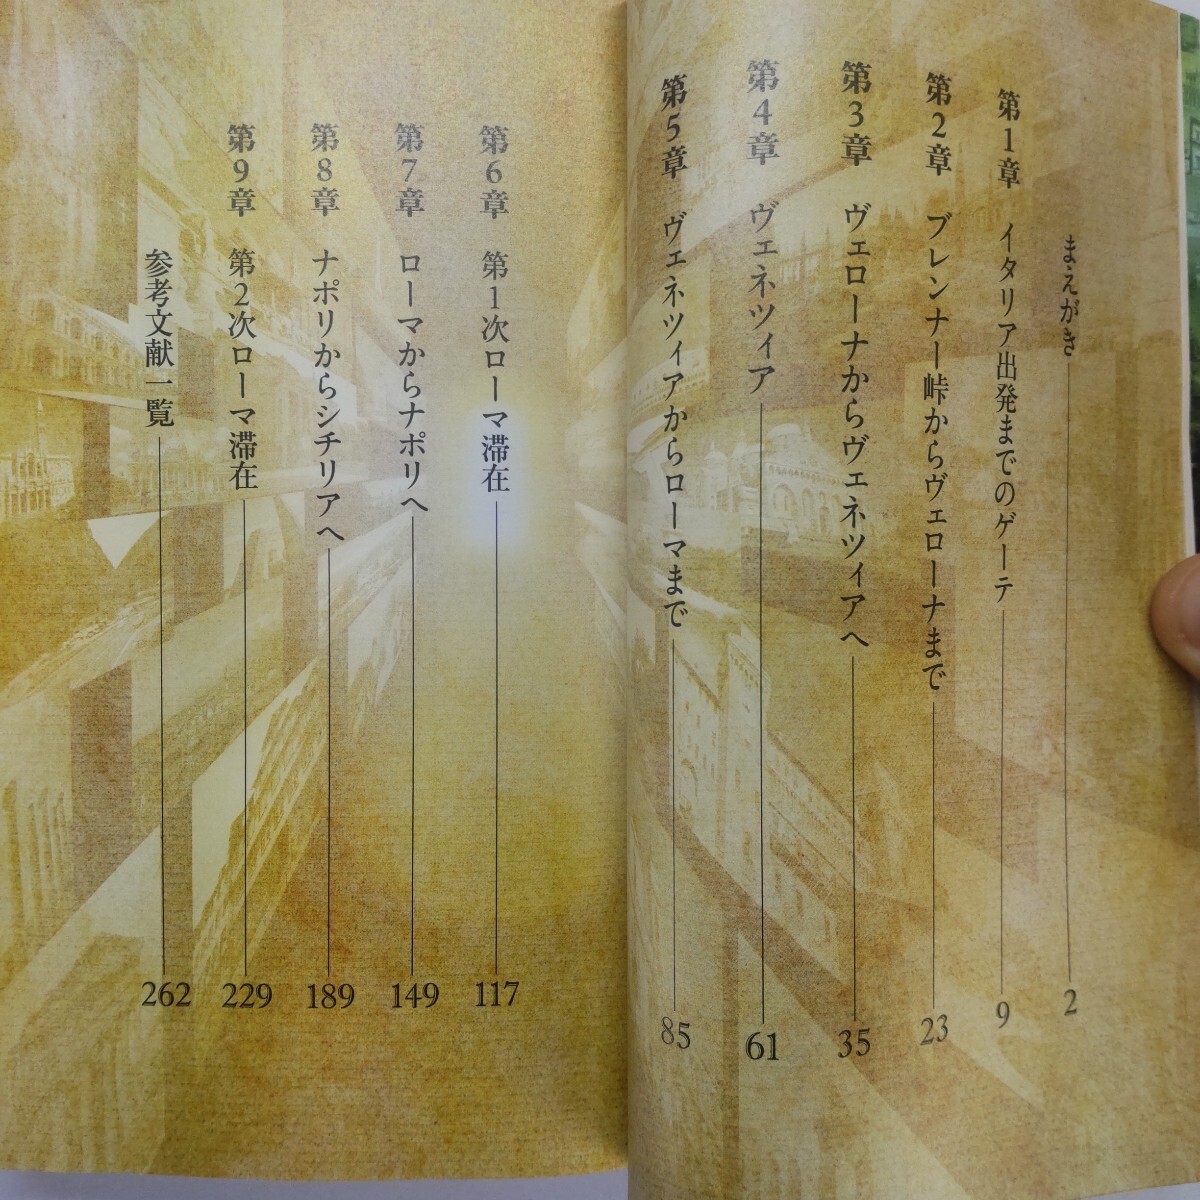 まえがき 2
第1章 イタリア出発までのゲーテ 9
第2章 ブレンナー峠からヴェローナまで 23
第3章 ヴェローナからヴェネツィアへ 35
第4章 ヴェネツィア 61
第5章 ヴェネツィアからローマまで 85
第6章 第1次ローマ滞在 117
第7章 ローマからナポリへ 149
第8章 ナポリからシチリアへ 189
第9章 第2次ローマ滞在 229
参考文献一覧 262